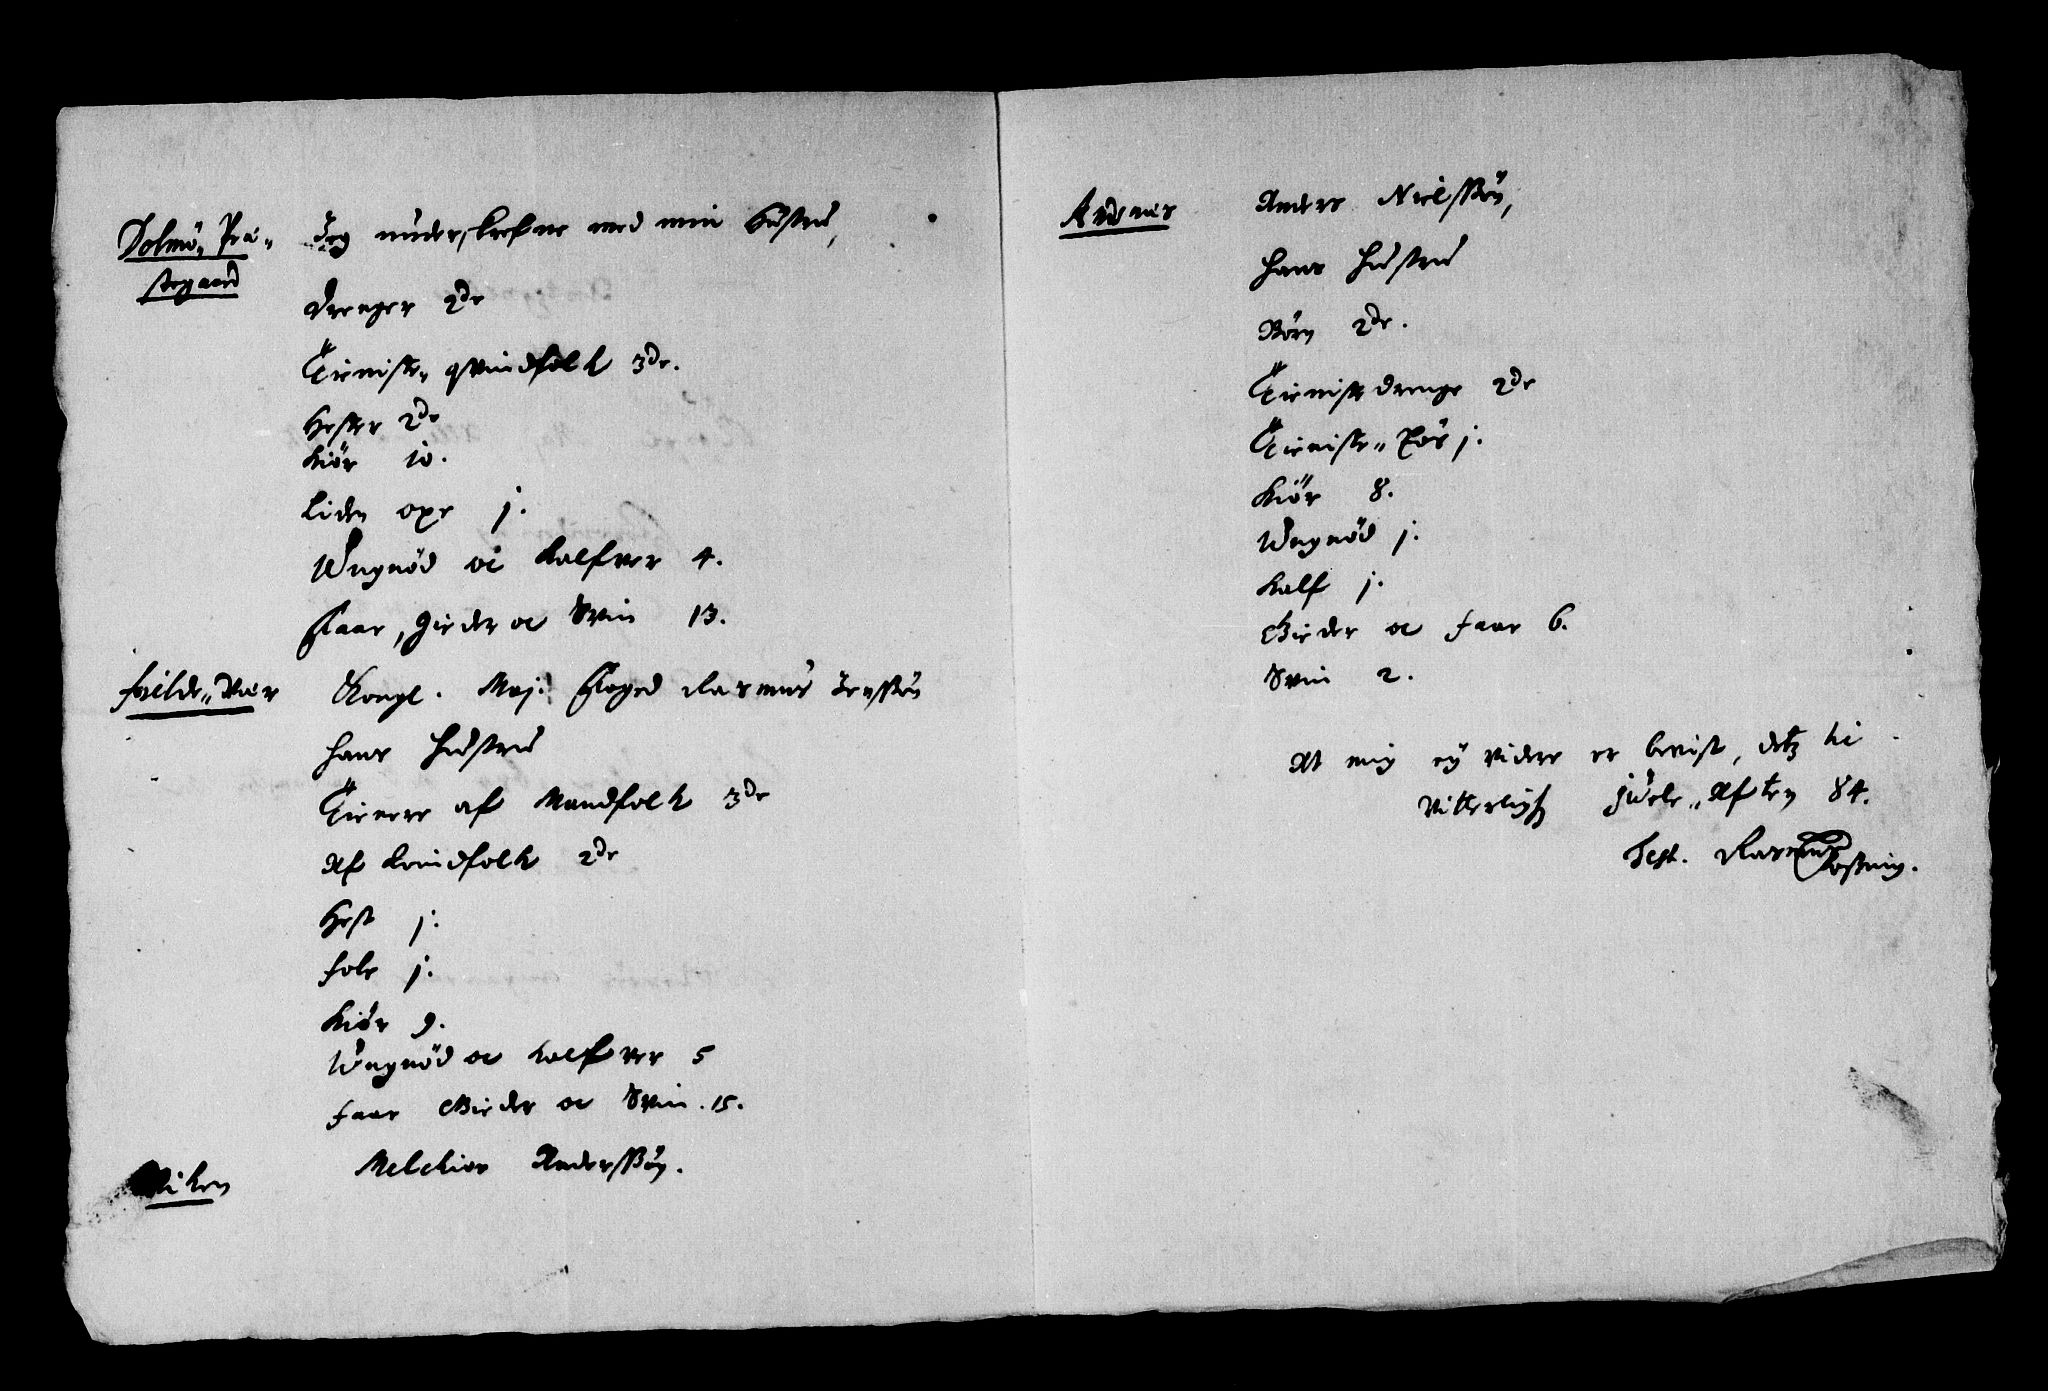 Dolmö, Præ-
stegaard
Jeg underskrefne med min hustru,
drenger 2de
Tieniste, qvindfolk 3de.
Hester 2de
Kiör 10.
Liden oxe j.
Ungnöd oc kalfver 4.
Faar, Gieder oc Svin 13.
Fielde-Vær
Kongl. Maj. Foged Rasmus Jenssön
hans Hustru
Tienere af Mandfolk 3de
Af kvindfolk 2de
Hest j.
Fole j.
Kiör 9.
Ungnöd oc kalfver 5
Faar Gieder oc Svin. 15.
Viken
Melchior Anderssön.
Anders Nielssön,
hans Hustru
Börn 2de.
Tieniste drenge 2de
Tieniste-Pös j.
Kiör 8.
Ungnöd j.
Kalf j.
Gieder oc Faar 6.
Svin 2.
At mig ey videre er bevist, detz til
Vitterligh Juele-Aften 84.
Test. Rasmus